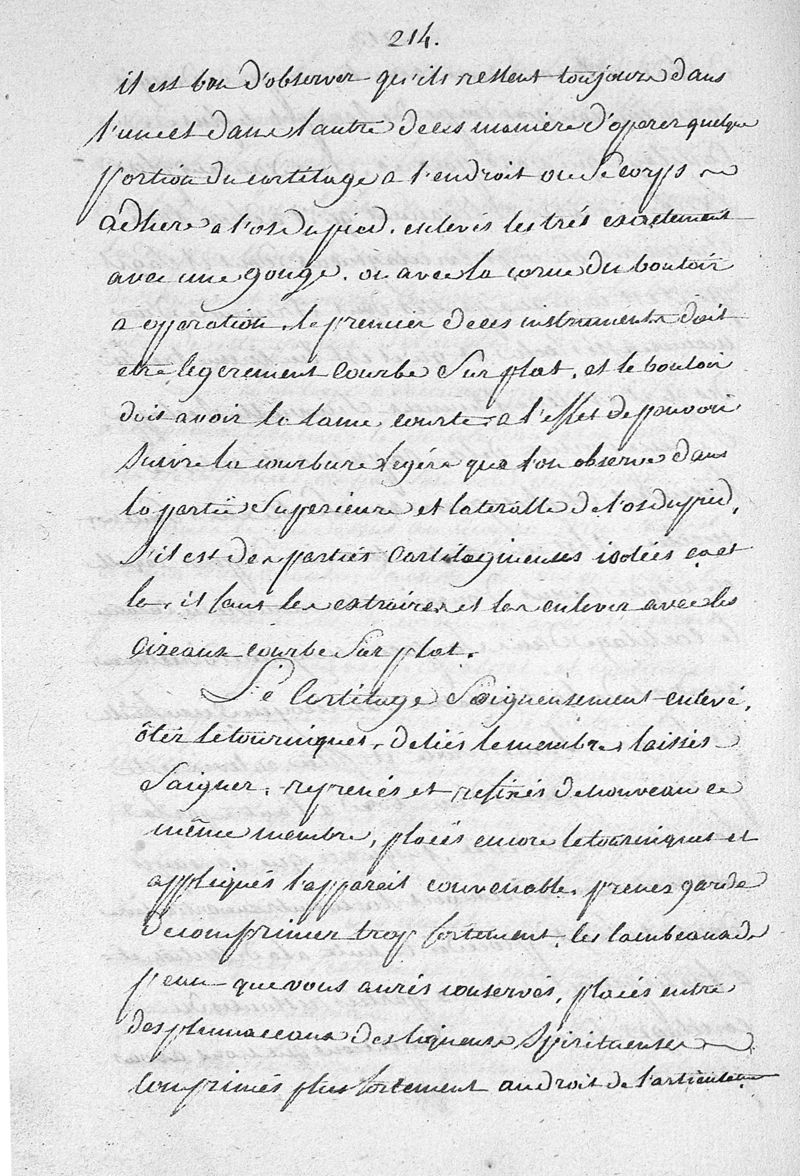 214.
il est bon d'observer qu'ils restent toujours dans
l'une et dans l'autre de ces maniere d'operer quelque
portion du cartilage a l'endroit ou Se corps
adhere a l'os du pied. enlevés les trés exactement
avec une gouge. ou avec la corne du boutoir
a opperation, le premier de ces instruments doit
etre legerement courbe Sur plat, et le boutoir
doit avoir la lame courte, a l'effet de pouvoir
Suivre la courbure legére que l'on observe dans
la partie Superieure et lateralle de l'os du pied,
S'il est des parties Cartilagineuses isolées ça et
la, il faut les extraires et les enlever avec les
Cizeaux courbe Sur plat.
Le Cartilage Soigneusement enlevé,
ôtés le tourniquet, deliés le membre, laissés
Saigner, reprenés et refixés de nouveau ce
même membre, placés encore le tourniquet et
appliqués l'appareil convenable, prenes garde
de comprimer trop fortement, les lambeaux de
peau que vous aurés conservés, placés entre
des plumaceaux des liqueurs Spiritueuse
Comprimés plus fortement au droit de l'articulation